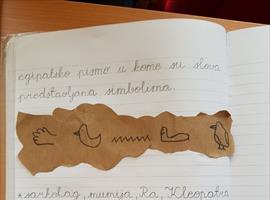 egipatsko pismo u kome su slova
predstavljena simbolima.
*sarkofag, mumija, Ra, Kleopatra